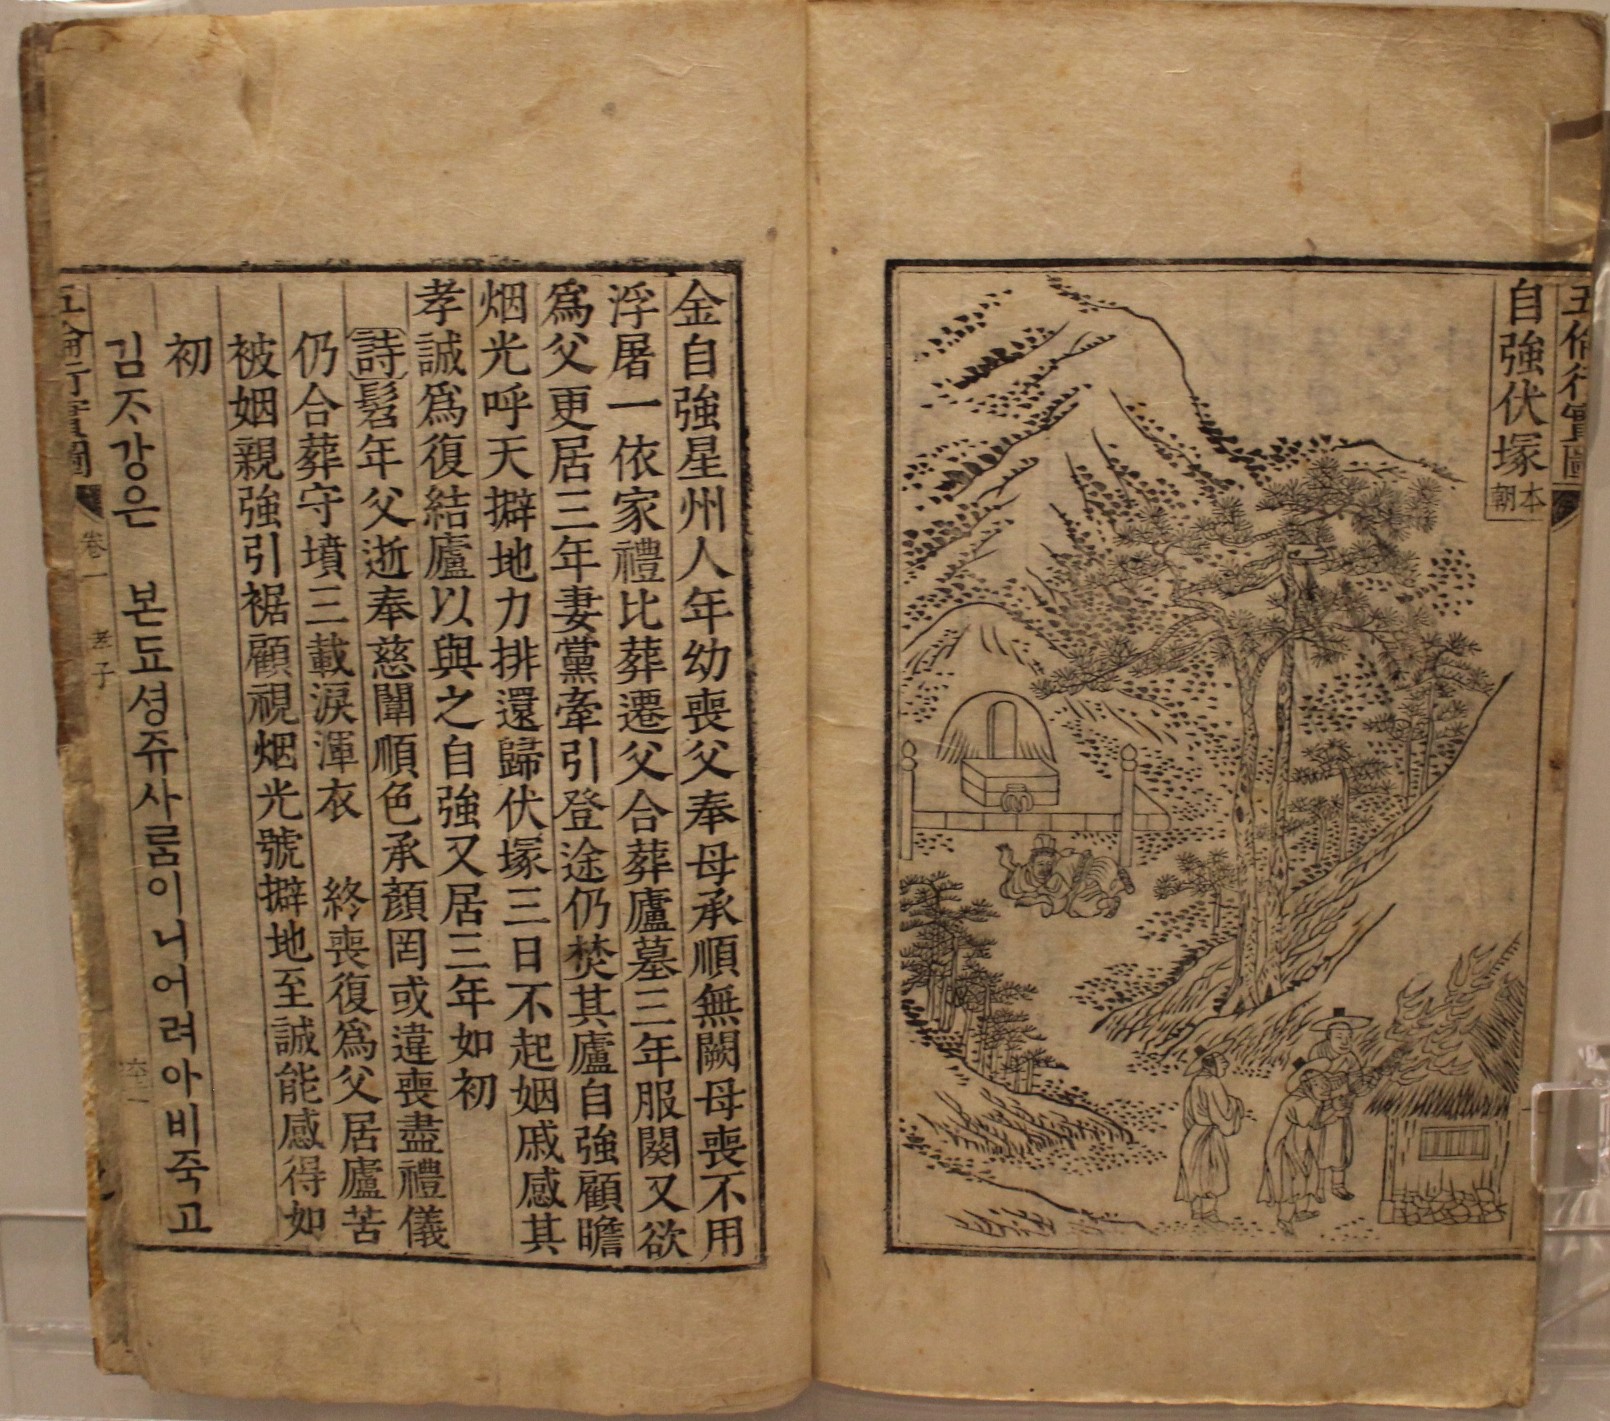 五倫行實圖
自強伏塚 本朝
金自強星州人年幼喪父奉母承順無闕母喪不用
浮屠一依家禮比葬遷父合葬廬墓三年服闋又欲
爲父更居三年妻黨牽引登途仍焚其廬自強顧瞻
烟光呼天擗地力排還歸伏塚三日不起姻戚感其
孝誠爲復結廬以與之自強又居三年如初
詩髫年父逝奉慈闈順色承顔罔或違喪盡禮儀
仍合葬守墳三載淚渾衣 終喪復爲父居廬苦
被姻親強引裾顧視烟光號擗地至誠能感得如
初
김ᄌᆞ강은 본됴셩쥬사ᄅᆞᆷ이니어려아비죽고
五倫行實圖 卷一 孝子